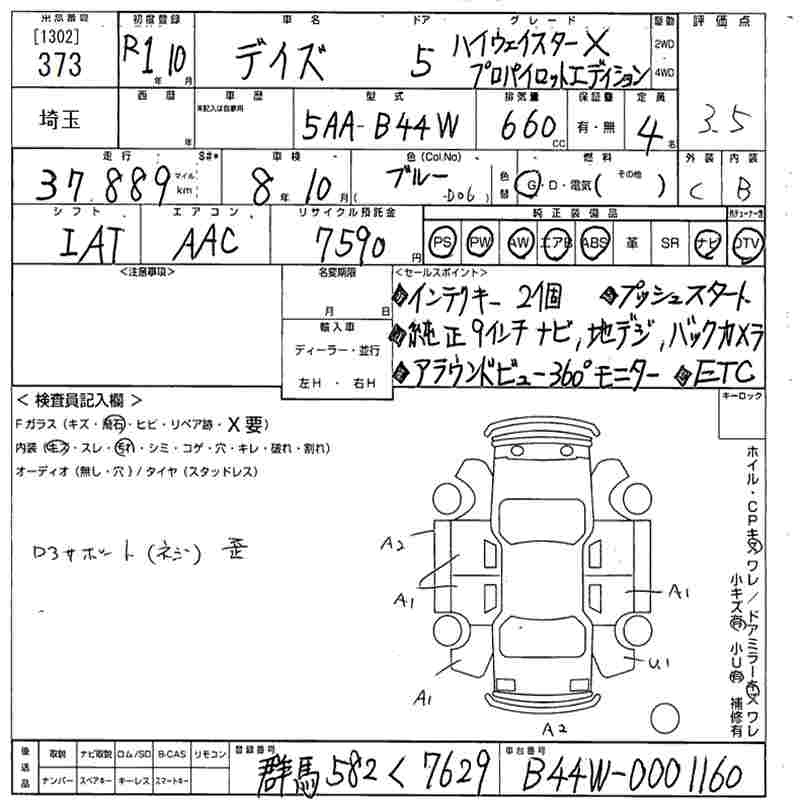 出品番号 初度登録 車名 ドア グレード 駆動 評価点
[1302] 373 R1 年 10 月 デイズ 5 ハイウェイスターX 2WD
プロパイロットエディション 4WD
埼玉 西暦 年 車歴 型式 排気量 保証書 定員 3.5
未記入は自家用 5AA-B44W 660 cc 有・無 4 名
走行 S#* 車検 色(Col.No) 燃料 外装 内装
37,889 マイル km 8 年 10 月 ブルー ( -D06 ) 色替 G・D・電気( その他 ) C B
シフト エアコン リサイクル預託金 純正装備品
IAT AAC 7590 円 PS PW AW エアB ABS 革 SR ナビ DTV
<注意事項> 名変期限 <セールスポイント>
月 日 インテリキー 2個 プッシュスタート
輸入車 純正9インチナビ,地デジ,バックカメラ
ディーラー・並行 アラウンドビュー360°モニター ETC
左H・右H
キーロック
< 検査員記入欄 >
Fガラス (キズ・飛石・ヒビ・リペア跡・X要)
内装 (キズ・スレ・汚れ・シミ・コゲ・穴・キレ・破れ・割れ)
オーディオ (無し・穴) / タイヤ (スタッドレス)
コアサポート(ネジ) 歪
A2
A1
A1
A1
U1
A2
ホイル・CPキズ ワレ / ドアミラーキズ ワレ
小キズ有 小U有 補修有
後送品 取説 ナビ取説 ロム/SD B-CAS リモコン 登録番号 車台番号
ナンバー スペアキー キーレス スマートキー 群馬 582 く 7629 B44W-0001160